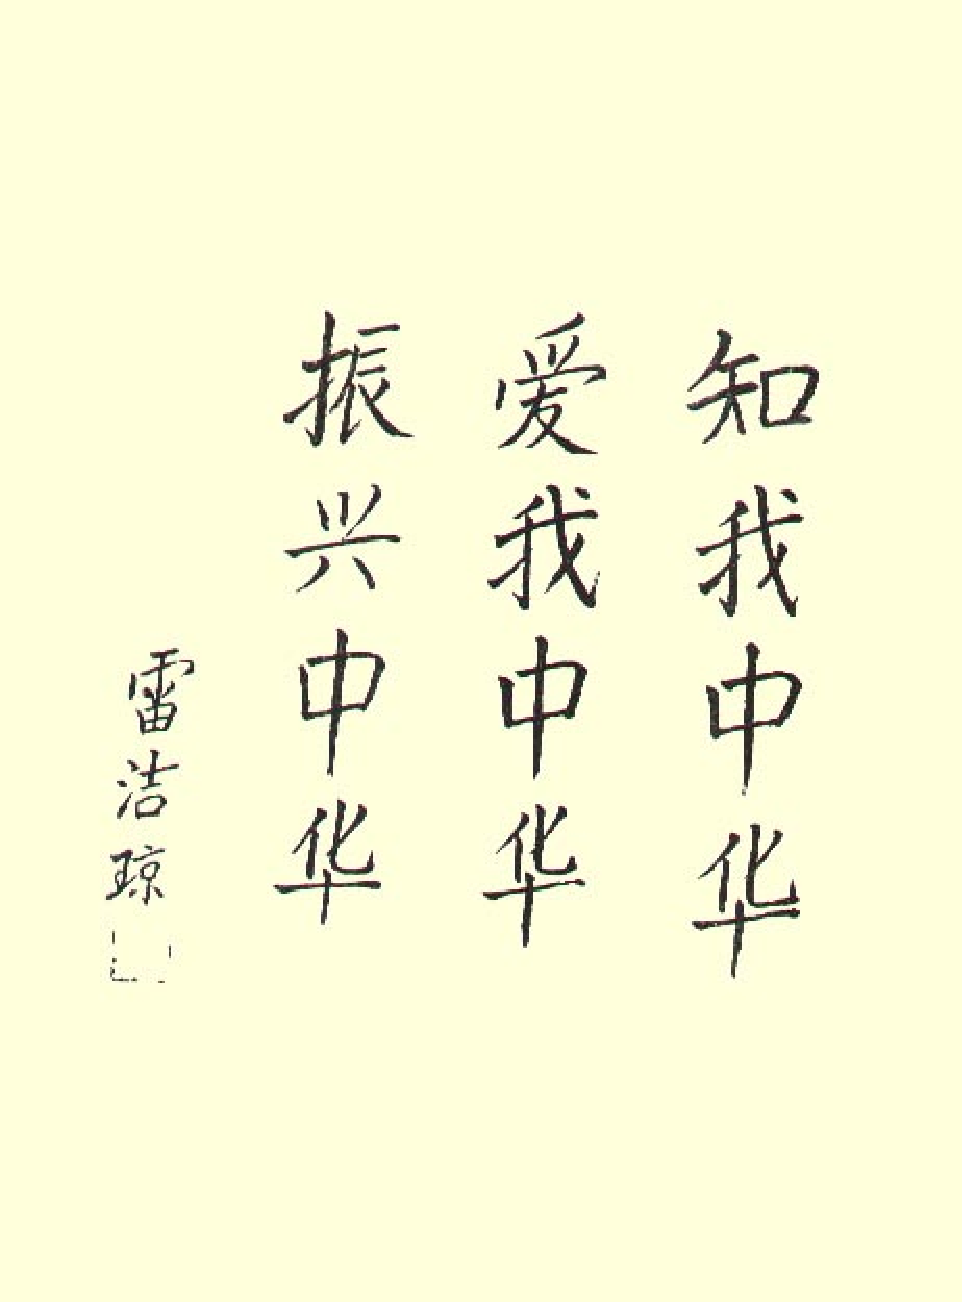 知我中华
爱我中华
振兴中华
雷洁琼